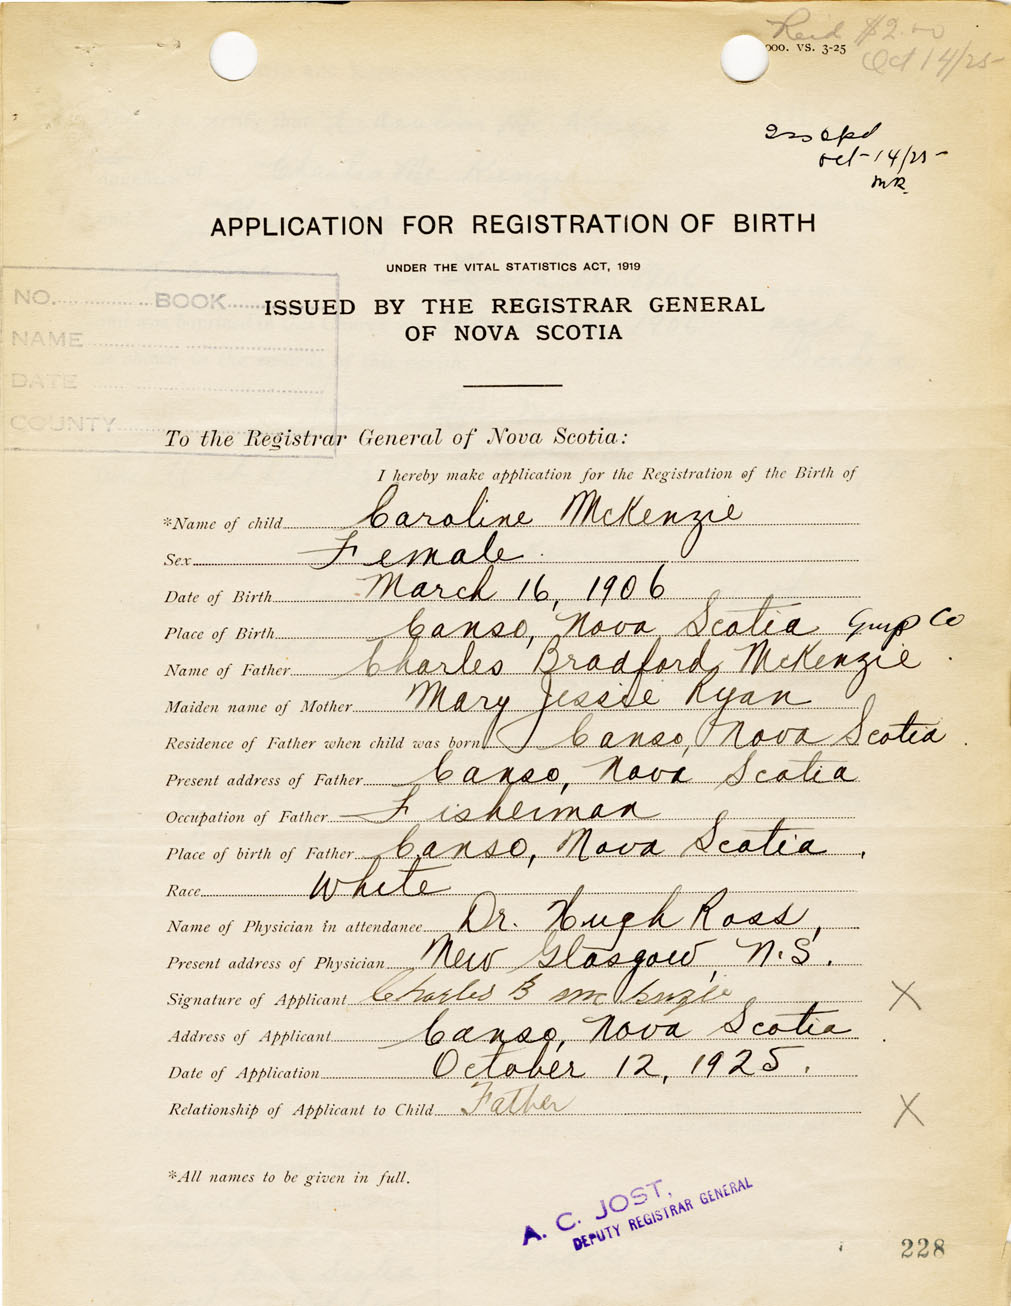 Paid $2.00
000. VS. 3-25
Oct 14/25-
Oct-14/25-
MR.
APPLICATION FOR REGISTRATION OF BIRTH
UNDER THE VITAL STATISTICS ACT, 1919
ISSUED BY THE REGISTRAR GENERAL
OF NOVA SCOTIA
NO. BOOK
NAME
DATE
COUNTY
To the Registrar General of Nova Scotia:
I hereby make application for the Registration of the Birth of
*Name of child Caroline McKenzie
Sex Female.
Date of Birth March 16, 1906
Place of Birth Canso, Nova Scotia Guys Co
Name of Father Charles Bradford McKenzie
Maiden name of Mother Mary Jessie Ryan
Residence of Father when child was born Canso, Nova Scotia.
Present address of Father Canso, Nova Scotia
Occupation of Father Fisherman
Place of birth of Father Canso, Nova Scotia.
Race White
Name of Physician in attendance Dr. Hugh Ross,
Present address of Physician New Glasgow, N.S.
Signature of Applicant Charles B McKenzie X
Address of Applicant Canso, Nova Scotia
Date of Application October 12, 1925.
Relationship of Applicant to Child Father X
*All names to be given in full.
A. C. JOST,
DEPUTY REGISTRAR GENERAL
228